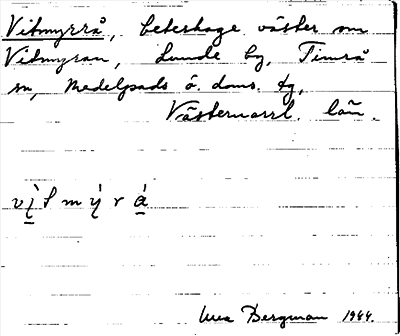 Vitmyrrå, beteshage väster om
Vitmyran, Lunde by, Timrå
sn, Medelpads ö. doms. tg,
Västernorrl. län.
vi̠̇t m ẏ r á̠
Bergman 1944.